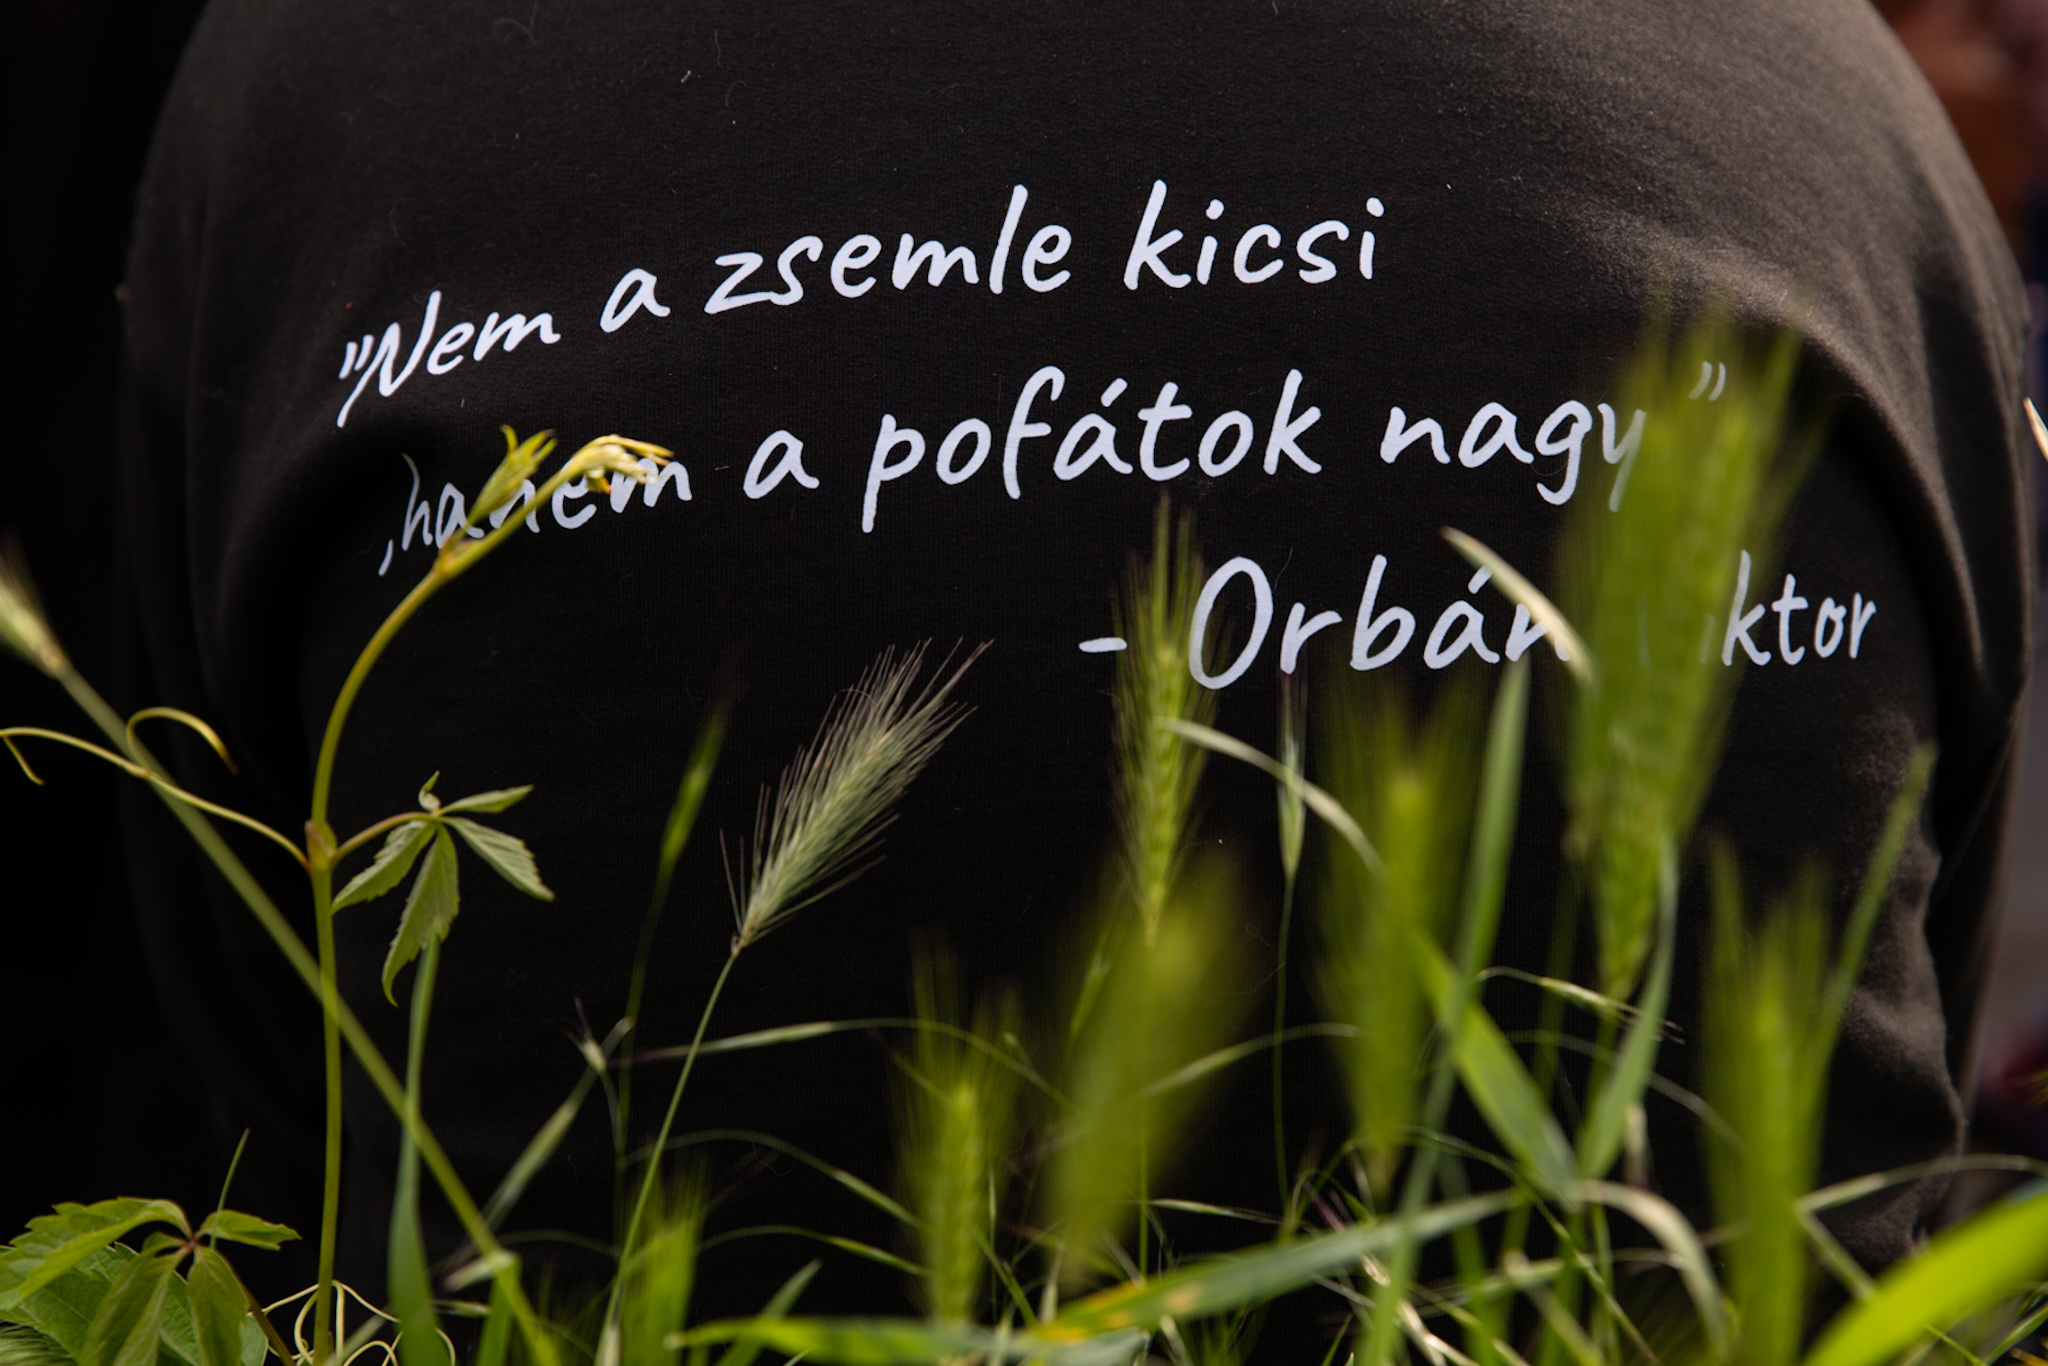 "Nem a zsemle kicsi
,hanem a pofátok nagy"
- Orbán Viktor